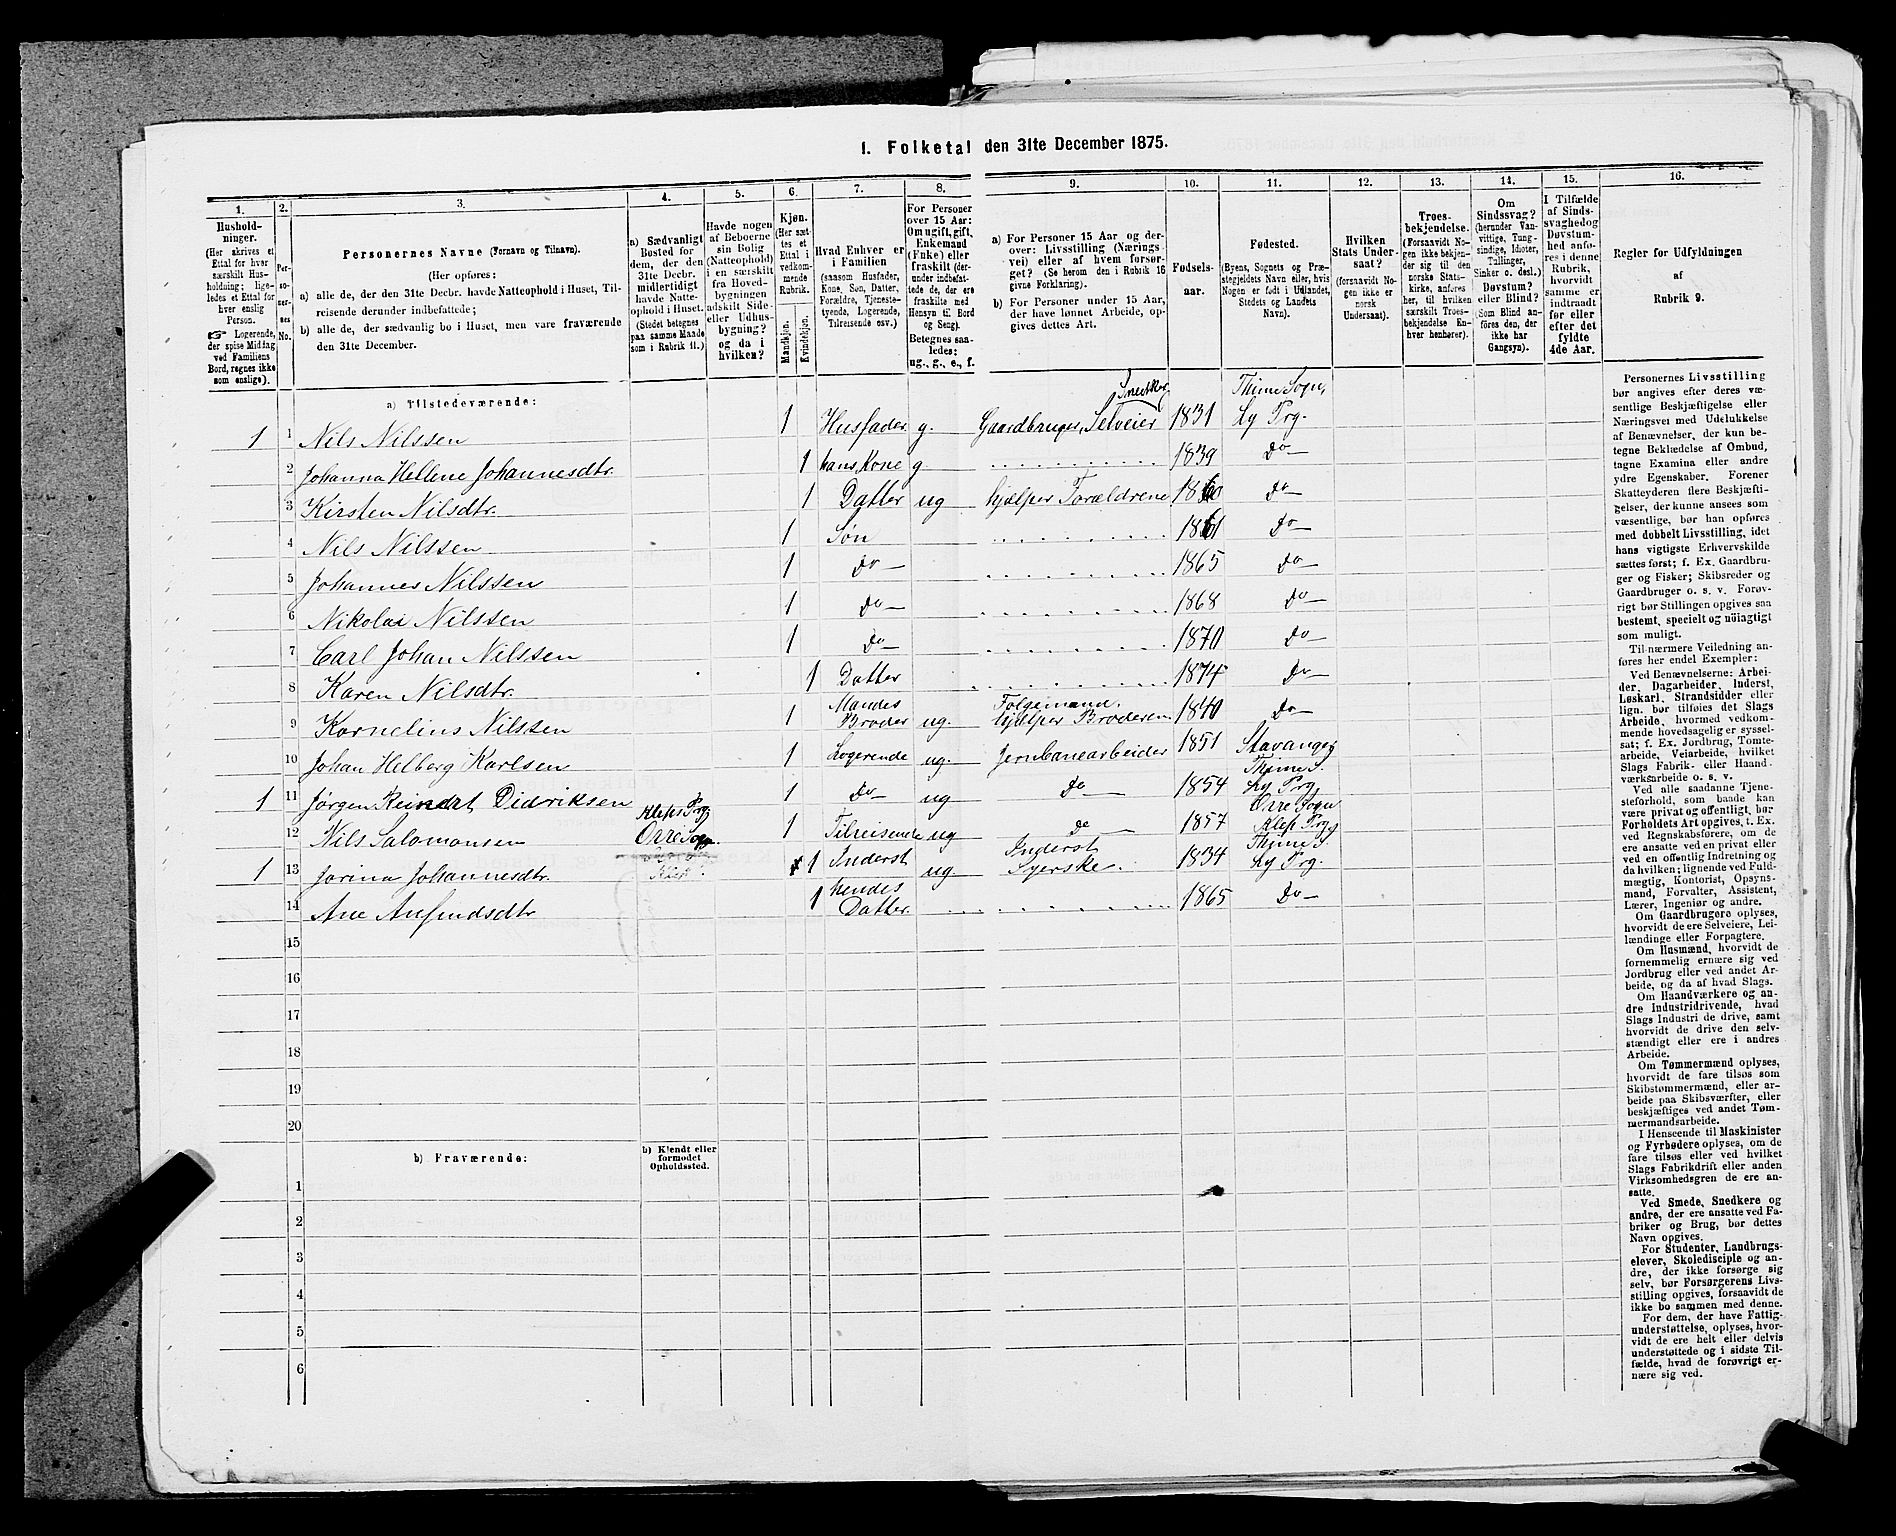 I. Folketal den 31te December 1875.
1. 2. 3. 4. 5. 6. 7. 8. 9. 10. 11. 12. 13. 14. 15. 16.
Husholdninger.
(Her skrives et
Ettal for hver
særskilt Hus-
holdning; lige-
ledes et Ettal for
hver enslig
Person.
☞ Logerende,
der spise Middag
ved Familiens
Bord, regnes ikke
som enslige).
Personernes No.
Personernes Navne (Fornavn og Tilnavn).
(Her opføres:
a) alle de, der den 31te Decbr. havde Natteophold i Huset, Til-
reisende derunder indbefattede;
b) alle de, der sædvanlig bo i Huset, men vare fraværende
den 31te December.
a) Sædvanligt
Bosted for
dem, der den
31te Decbr.
midlertidigt
havde Natte-
ophold i Huset.
(Stedet betegnes
paa samme Maade
som i Rubrik 11.)
Havde nogen
af Beboerne
sin Bolig
(Natteophold)
i en særskilt
fra Hoved-
bygningen
adskilt Side
eller Udhus-
bygning?
og da i
hvilken?
Kjøn.
(Her sæt-
tes et
Ettal i
vedkom-
mende
Rubrik.
Mandkjøn.
Kvindekjøn.
Hvad Enhver er
i Familien
(saasom Husfader,
Kone, Søn, Datter,
Forældre, Tjeneste-
tyende, Logerende,
Tilreisende osv.)
For Personer
over 15 Aar:
Om ugift, gift,
Enkemand
(Enke) eller
fraskilt (der-
under indbefat-
tede de, der ere
fraskilte med
Hensyn til Bord
og Seng).
Betegnes saa-
ledes:
ug., g., e., f.
a) For Personer 15 Aar og der-
over: Livsstilling (Nærings-
vei) eller af hvem forsør-
get? (Se herom den i Rubrik 16
givne Forklaring).
b) For Personer under 15 Aar,
der have lønnet Arbeide, op-
gives dettes Art.
Fødsels-
aar.
Fødested.
(Byens, Sognets og Præ-
stegjeldets Navn eller, hvis
Nogen er født i Udlandet,
Stedets og Landets
Navn).
Hvilken
Stats Under-
saat?
(forsaavidt No-
gen ikke er
norsk
Undersaat).
Troes-
bekjendelse.
(Forsaavidt No-
gen ikke bekjen-
der sig til den
norske Stats-
kirke, anføres
her, til hvilken
særskilt Troes-
bekjendelse En-
hver henhører).
Om
Sindssvag?
(herunder Van-
vittige, Tung-
sindige, Idioter,
Tullinger,
Sinker o. desl.)
Døvstum?
eller Blind?
(Som Blind an-
føres den, der
ikke har
Gangsyn).
I Tilfælde
af Sinds-
svaghed og
Døvstum-
hed anfø-
res i denne
Rubrik,
hvorvidt
samme er
indtraadt
før eller
efter det
fyldte
4de Aar.
Regler for Udfyldningen
af
Rubrik 9.
a) Tilstedeværende:
1 1 Nils Nilssen 1 Husfader g. Gaardbruger, Selveier Snedker 1831 Thime Sogn, Ly Prg.
2 Johanna Hellene Johannesdtr. 1 hans Kone g. 1839 Do
3 Kirsten Nilsdtr. 1 Datter ug hjælper Forældrene 1860 Do
4 Nils Nilssen 1 Søn 1861 Do
5 Johannes Nilssen 1 Do 1865 Do
6 Nikolai Nilssen 1 Do 1868 Do
7 Carl Johan Nilssen 1 Do 1870 Do
8 Karen Nilsdtr. 1 Datter 1874 Do
9 Kornelius Nilssen 1 Mandes Broder ug. Følgemand. hjælper Broderen 1840 Do
10 Johan Helberg Karlsen 1 Logerende ug. Jernbanearbeider 1851 Stavanger
1 11 Jørgen Reindert Didriksen 1 Do ug Do 1854 Thime S. Ly Prg
12 Nils Salomonsen Klep Prg. Orre Sogn. 1 Tilreisende ug Do 1857 Orre Sogn Klep Prg
1 13 Jorina Johannesdtr. 1 Inderst ug. Inderst Syerske. 1834 Thime S. Ly Prg.
14 Ane Anfindsdtr 1 hendes Datter. 1865 Do
15
16
17
18
19
20
b) Fraværende:
b) Kjendt eller
formodet
Opholdssted.
1
2
3
4
5
6
Personernes Livsstilling
bør angives efter deres væ-
sentlige Beskjæftigelse eller
Næringsvei med Udelukkelse
af Benævnelser, der kun be-
tegne Beklædelse af Ombud,
tagne Examina eller andre
ydre Egenskaber. Forener
Skatteyderen flere Beskjæfti-
gelser, der kunne ansees som
væsentlige, bør han opføres
med dobbelt Livsstilling, idet
hans vigtigste Erhvervskilde
sættes først; f. Ex. Gaardbru-
ger og Fisker; Skibsreder og
Gaardbruger o. s. v. Forøv-
rigt bør Stillingen opgives saa
bestemt, specielt og nøiagtigt
som muligt.
Til nærmere Veiledning an-
føres her endel Exempler:
Ved Benævnelserne: Arbei-
der, Dagarbeider, Inderst,
Løskarl, Strandsidder eller
lign. bør tilføies det Slags
Arbeide, hvormed vedkom-
mende hovedsagelig er syssel-
sat; f. Ex. Jordbrug, Tomte-
arbeide, Veiarbeide, hvilket
Slags Fabrik- eller Haand-
værksarbeide o. s. v.
Ved alle saadanne Tjene-
steforhold, som baade kan
være privat og offentligt, bør
Forholdets Art opgives, t. Ex.
ved Regnskabsførere, om de
ere ansatte ved en privat eller
ved en offentlig Indretning og
da hvilken; lignende ved Fuld-
mægtig, Kontorist, Opsyns-
mand, Forvalter, Assistent,
Lærer, Ingeniør og andre.
Om Gaardbrugere oplyses,
hvorvidt de ere Selveiere, Lei-
lændinge eller Forpagtere.
Om Husmænd, hvorvidt de
fornemmelig ernære sig ved
Jordbrug eller ved andet Ar-
beide, og da af hvad Slags.
Om Haandværkere og an-
dre Industridrivende, hvad
Slags Industri de drive, samt
hvorvidt de drive den selv-
stændigt eller ere i andres
Arbeide.
Om Tømmermænd oplyses,
hvorvidt de fare tilsøs som
Skibstømmermænd, eller ar-
beide paa Skibsværfter, eller
beskjæftiges ved andet Tøm-
mermandsarbeide.
I Henseende til Maskinister
og Fyrbødere oplyses, om de
fare tilsøs eller ved hvilket
Slags Fabrikdrift eller anden
Virksomhedsgren de ere an-
satte.
Ved Smede, Snedkere og
andre, der ere ansatte ved Fa-
briker og Brug, bør dettes
Navn opgives.
For Studenter, Landbrugs-
elever, Skoledisciple og an-
dre, der ikke forsørge sig
selv, bør Forsørgerens Livs-
stilling opgives, forsaavidt de
ikke bo sammen med denne.
For dem, der have Fattig-
understøttelse, oplyses, hvor-
vidt de ere helt eller delvis
understøttede og i sidste Til-
fælde, hvad de forøvrigt er-
nære sig ved.